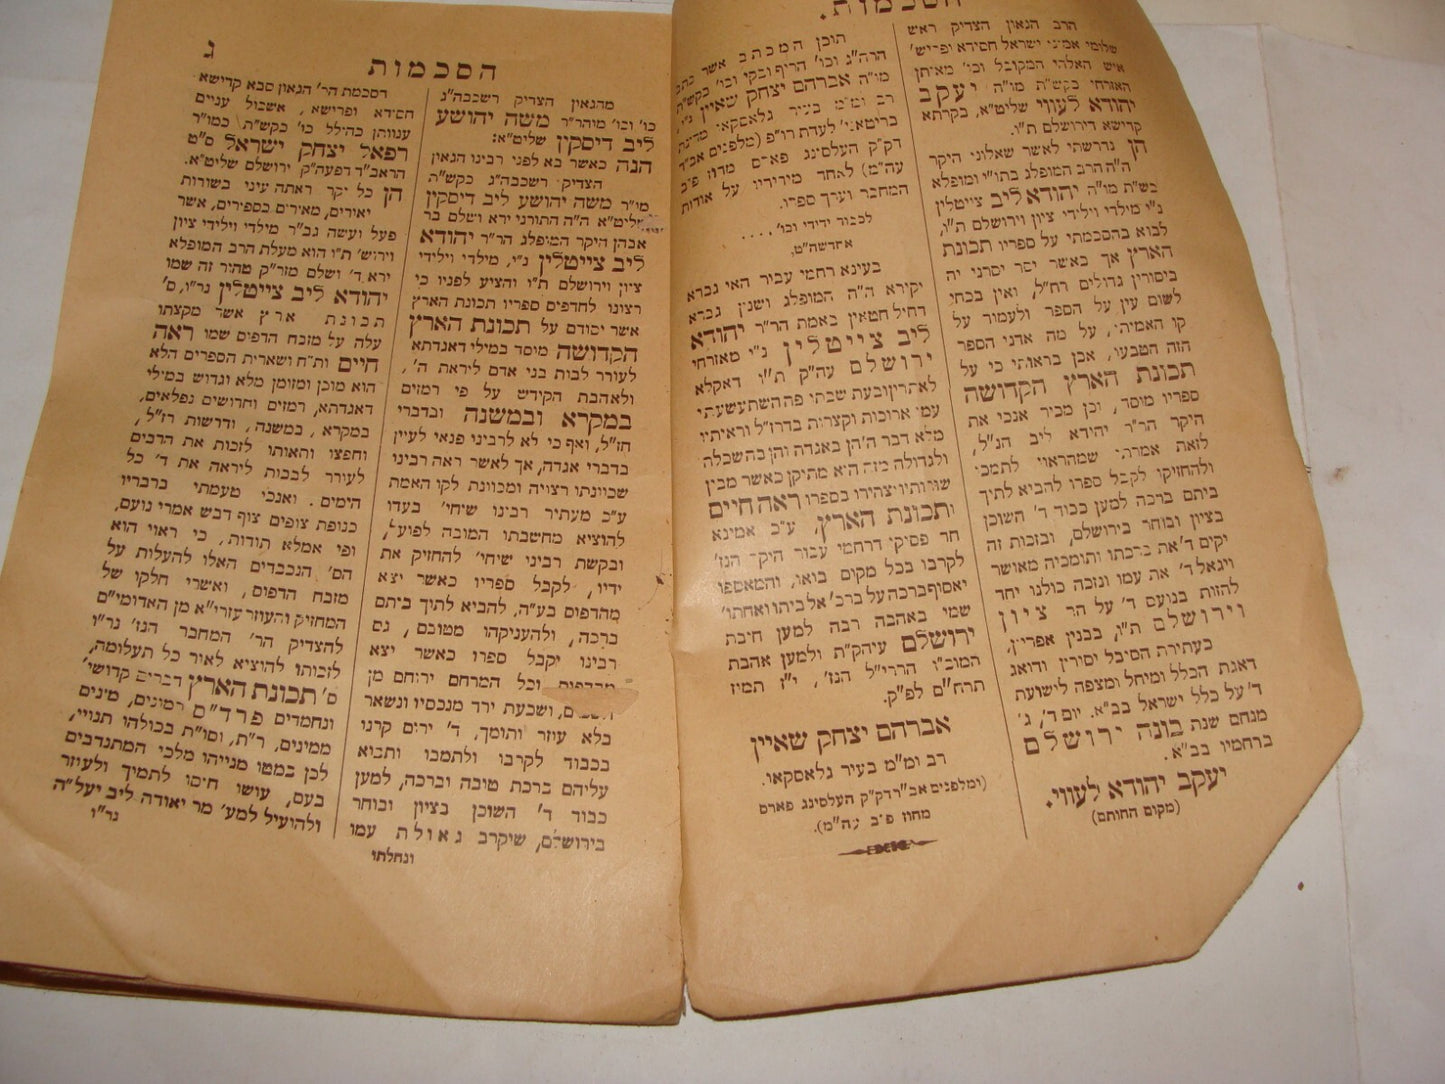 הסכמות.
הרב הגאון הצדיק ראש
שלומי אמוני ישראל חסידא ופריש'
איש האלהי המקובל וכו' מאיתן
האזרחי בקש"ת מו"ה יעקב
יהודא לעווי שליט"א, בקרתא
קדישא דירושלם ת"ו.
הן נדרשתי לאשר שאלוני היקר
ה"ה הרב המופלג בתו"י ומופלא
בש"ת מו"ה יהודא ליב צייטלין
נ"י מילדי וילידי ציון וירושלם ת"ו,
לבוא בהסכמתי על ספריו תכונת
הארץ אך באשר יסר יסרני יה
ביסורין גדולים רח"ל, ואין בכחי
לשום עין על הספר ולעמוד על
קו האמיתי, על מה אדני הספר
הזה הטבעו, אכן בראותי כי על
תכונת הארץ הקדושה
ספריו מיסד, וכן מכיר אנכי את
היקר הר"ר יהודא ליב הנ"ל,
לזאת אמרתי שמהראוי לתמכו
ולהחזיקו לקבל ספרו להביא לתוך
ביתם ברכה למען כבוד ד' השוכן
בציון ובוחר בירושלם, ובזכות זה
יקים ד' את ברכתו ותומכיה מאושר
ויגאל ד' את עמו ונזכה כולנו יחד
לחזות בנועם ד' על הר ציון
וירושלם ת"ו, בבנין אפריון,
כעתירת הסובל יסורין ודואג
דאגת הכלל ומיחל ומצפה לישועת
ד' על כלל ישראל בב"א. יום ד', ג'
מנחם שנת בונה ירושלם
ברחמיו בב"א.
יעקב יהודא לעווי.
(מקום החותם)
תוכן המכתב אשר כתב
הרה"ג וכו' חריף ובקי וכו' בקש"ת
מו"ה אברהם יצחק שאיין נ"י,
רב ומ"מ בעיר גלאסקאו מדינת
בריטאני' לעדת רו"פ (מלפנים אב"ד
דק"ק העלסינג פארס מחוז פ"ב
עה"מ) לאחד מידידיו על אודות
המחבר וערך ספריו.
לכבוד ידידי וכו' . . . .
אחדשה"ט,
בעינא רחמי עבור האי גברא
יקירא ה"ה המופלג ושנון גברא
דחיל חטאין באמת הר"ר יהודא
ליב צייטלין נ"י מאזרחי
ירושלם עה"ק ת"ו דאקלא
לאתרין ובעת שבתי פה השתעשעתי
עמו ארוכות וקצרות בדרז"ל וראיתיו
מלא דבר ה' הן באגדה והן בהשכלה
ולגדולה מזה היא מתיקן כאשר מבין
שורותיו יצהירו בספרו ראה חיים
ותכונת הארץ, ע"כ אמינא
חד פסוקי דרחמי עבור היקר הנז'
לקרבו בכל מקום בואו, והמאספו
יאסוף ברכה על ברכ' אל ביתו ואחתו'
שמי באהבה רבה למען חיבת
ירושלם עיהק"ת ולמען אהבת
המוכ"ז הררי"ל הנז', י"ז תמוז
תרח"ם לפ"ק.
אברהם יצחק שאיין
רב ומ"מ בעיר גלאסקאו.
(ומלפנים אב"ד דק"ק העלסינג פארס
מחוז פ"ב עה"מ).
ג
הסכמות
מהגאון הצדיק רשכבה"ג
כו' וכו' מוהר"ר משה יהושע
ליב דיסקין שליט"א:
הנה כאשר בא לפני רבינו הגאון
הצדיק רשכבה"ג בקש"ת
מו"ר משה יהושע ליב דיסקין
שליט"א ה"ה התורני ירא ושלם בר
אבהן היקר המופלג הר"ר יהודא
ליב צייטלין נ"י, מילדי וילידי
ציון וירושלם ת"ו והציע לפניו כי
רצונו להדפיס ספריו תכונת הארץ
אשר יסודם על תכונת הארץ
הקדושה מיסד במילי דאגדתא
לעורר לבות בני אדם ליראת ה',
ולאהבת הקודש על פי רמזים
במקרא ובמשנה ובדברי
חז"ל, ואף כי לא לרבינו פנאי לעיין
בדברי אגדה, אך לאשר ראה רבינו
שכוונתו רצויה ומכוונת לקו האמת
ע"כ מעתיר רבינו שיחי' בעדו
להוציא מחשבתו הטובה לפועל,
ובקשת רבינו שיחי' להחזיק את
ידיו, לקבל ספריו כאשר יצא
מהדפוס בע"ה, להביא לתוך ביתם
ברכה, ולהעניקהו מטובם, גם
רבינו יקבל ספרו כאשר יצא
מהדפוס וכל המרחם ירוחם מן
השמים, ושבעת ירד מנכסיו ונשאר
בלא עוזר ותומך, ד' ירים קרנו
בכבוד לקרבו ולתמכו ותבוא
עליהם ברכת טובה וברכה, למען
כבוד ד' השוכן בציון ובוחר
בירושלם, שיקרב גאולת עמו
ונחלתו
הסכמת הר' הגאון סבא קדישא
חסידא ופרישא, אשכול עניים
ענוותן כהלל כו' בקש"ת, כמו"ר
רפאל יצחק ישראל ס"ט
הראב"ד דפעה"ק ירושלם שליט"א.
הן כל יקר ראתה עיני בשורות
יאורים, מאירים כספירים, אשר
פעל ועשה גב"ר מילדי וילידי ציון
וירוש' ת"ו הוא מעלת הרב המופלא
ירא ד' ושלם מזר"ק טהור זה שמו
יהודא ליב צייטלין נר"ו, ס'
תכונת ארץ אשר מקצתו
עלה על מזבח הדפוס שמו ראה
חיים ות"ח ושארית הספרים הלא
הוא מוכן ומזומן מלא וגדוש במילי
דאגדתא, רמזים וחדושים נפלאים,
במקרא, במשנה, ודרשות רז"ל,
וחפצו ותאותו לזכות את הרבים
לעורר לבבות ליראה את ד' כל
הימים. ואנכי טעמתי בדבריו
כנופת צופים צוף דבש אמרי נועם,
ופי אמלא תודות, כי ראוי הוא
הס' הנכבדים האלו להעלות על
מזבח הדפוס, ואשרי חלקו של
המחזיק והעוזר עזרי"א מן האדומי"ם
להצדיק הר' המחבר הנז' נר"ו
לזכותו להוציא לאור כל תעלומה,
ס' תכונת הארץ דברים קדושי'
ונחמדים פרד"ס רמוזים, מינים
ממינים, ר"ת, וסו"ת בכולהו תנויי,
לכן במטו מנייהו מלכי המתנדבים
בעם, עושו חיסו לתמיך ולעיזר
ולהועיל למע' מר יאודה ליב יעל"ה
נר"ו